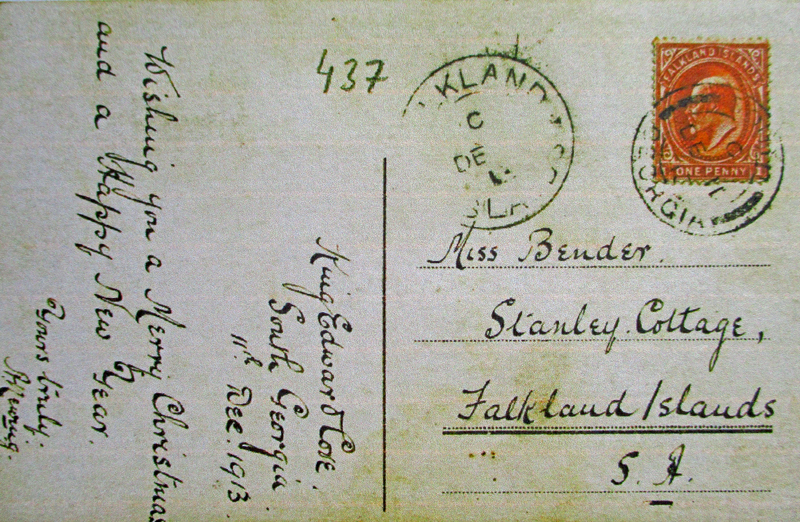 437
FALKLAND ISLANDS
ONE PENNY
KLAND
C
DE
GEORGIA
Miss Bender.
Stanley Cottage,
Falkland Islands
S. A.
King Edward Cove.
South Georgia
11th Dec. 1913.
Wishing you a Merry Christmas
and a Happy New Year.
Yours truly.